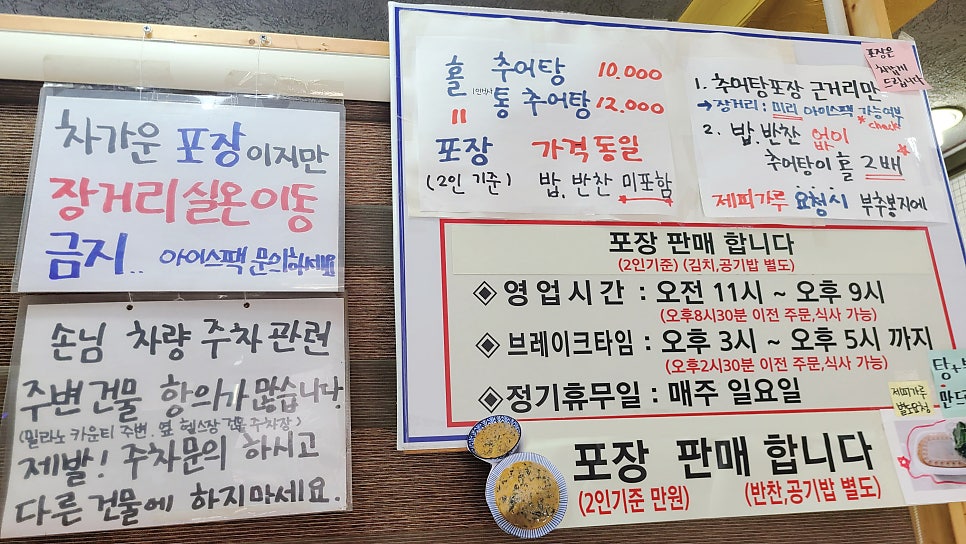 차가운 포장이지만
장거리 실온이동
금지.. 아이스팩 문의하세요
손님 차량 주차 관련
주변 건물 항의가 많습니다
(밀라노 카운티 주변. 옆 헬스장 건물 주차장)
제발! 주차문의 하시고
다른 건물에 하지마세요.
홀 추어탕 10.000
〃 통 추어탕 12.000
포장 가격 동일
(2인 기준) 밥, 반찬 미포함
포장은
차갑게
드립니다
1. 추어탕포장 근거리만
→장거리 : 미리 아이스팩 가능여부
*check
2. 밥.반찬 없이
추어탕이 홀 2배
제피가루 요청시 부추봉지에
포장 판매 합니다
(2인기준) (김치,공기밥 별도)
◈영업시간 : 오전 11시 ~ 오후 9시
(오후8시30분 이전 주문,식사 가능)
◈브레이크타임 : 오후 3시 ~ 오후 5시 까지
(오후2시30분 이전 주문,식사 가능)
◈정기휴무일 : 매주 일요일
제피가루
별도요청
포장 판매 합니다
(2인기준 만원) (반찬,공기밥 별도)